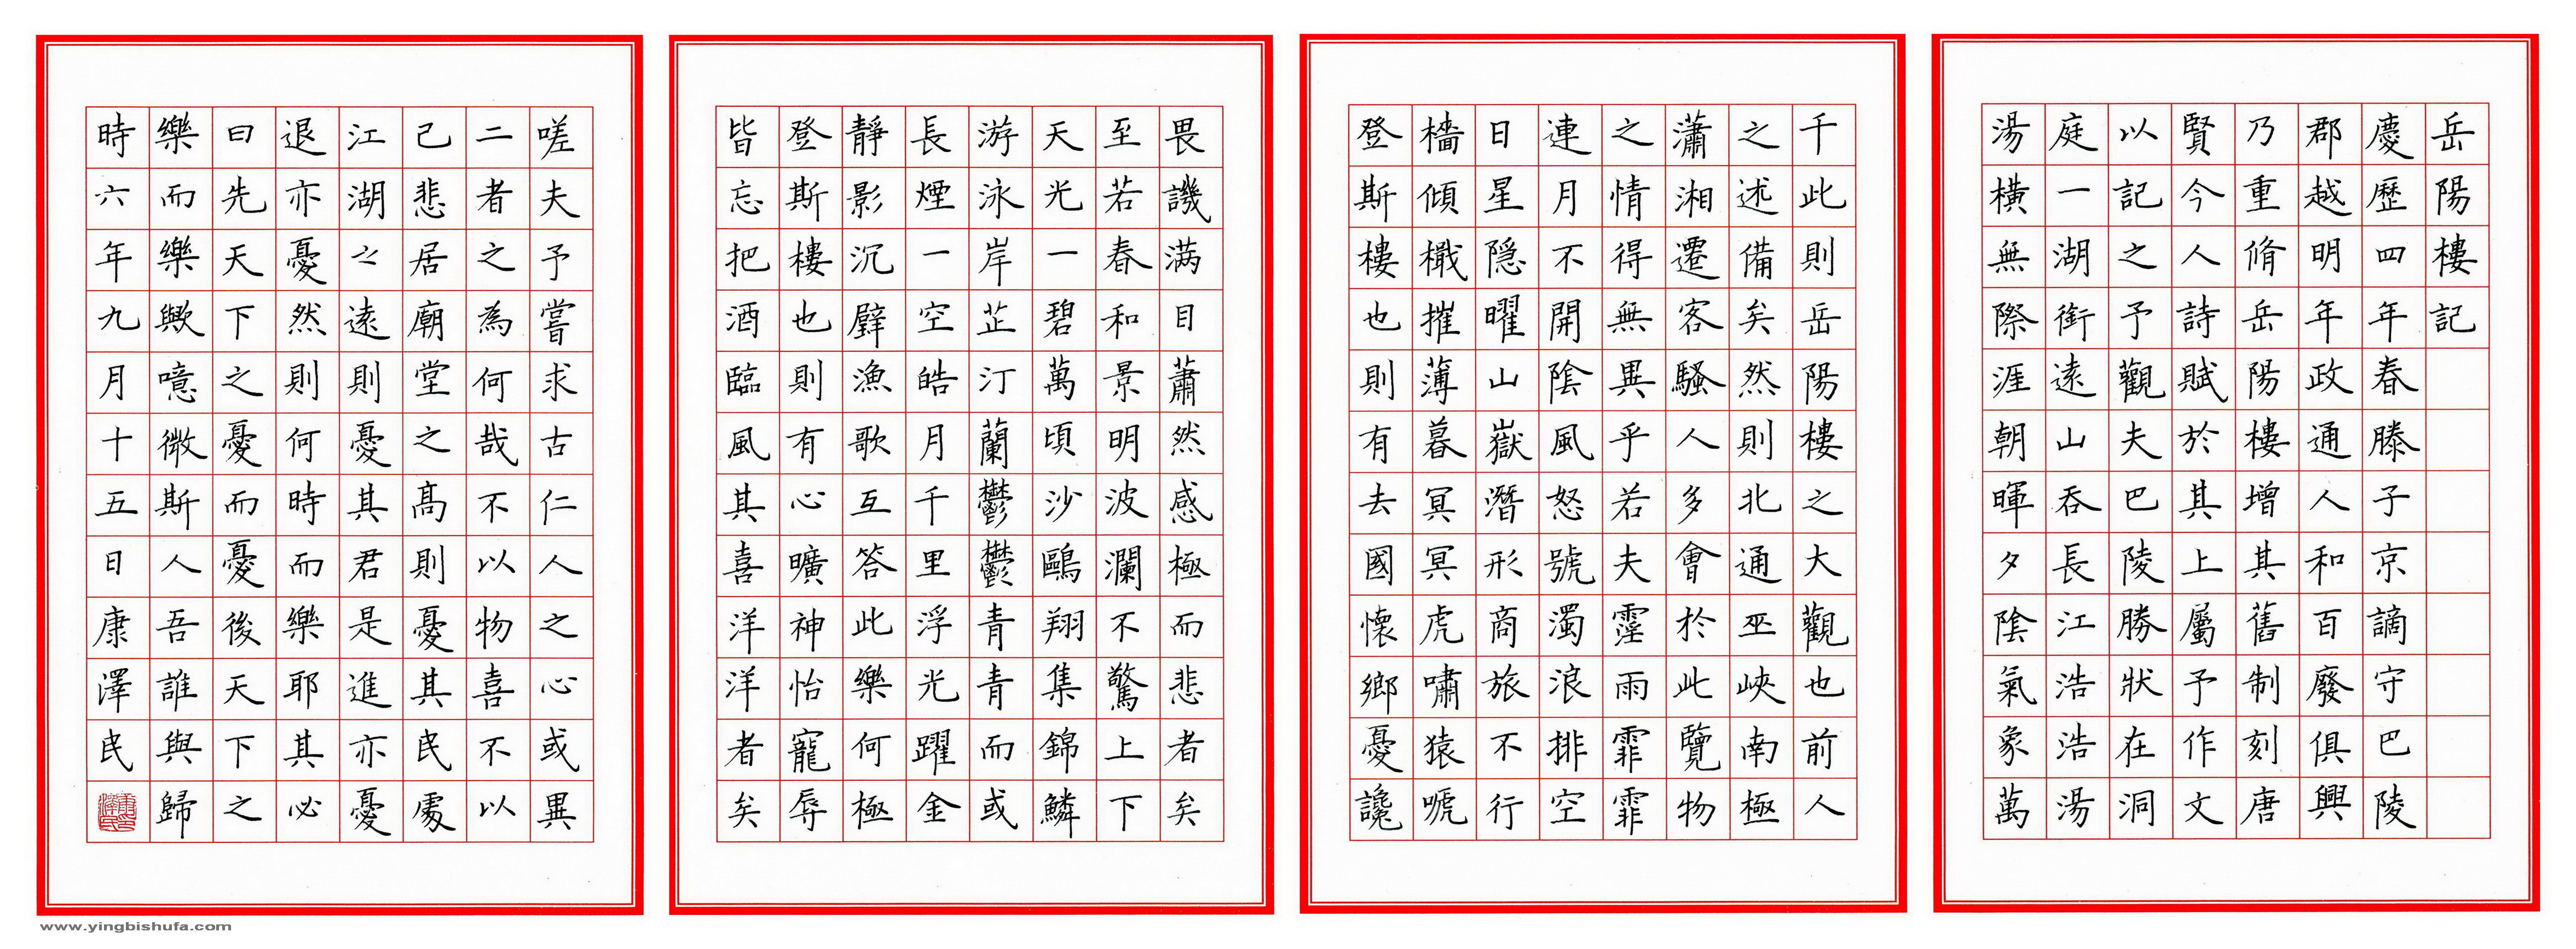 岳陽樓記
慶歷四年春滕子京謫守巴陵
郡越明年政通人和百廢俱興
乃重脩岳陽樓增其舊制刻唐
賢今人詩賦於其上屬予作文
以記之予觀夫巴陵勝狀在洞
庭一湖銜遠山吞長江浩浩湯
湯橫無際涯朝暉夕陰氣象萬
千此則岳陽樓之大觀也前人
之述備矣然則北通巫峽南極
瀟湘遷客騷人多會於此覽物
之情得無異乎若夫霪雨霏霏
連月不開陰風怒號濁浪排空
日星隱曜山嶽潛形商旅不行
檣傾檝摧薄暮冥冥虎嘯猿唬
登斯樓也則有去國懷鄉憂讒
畏譏满目蕭然感極而悲者矣
至若春和景明波瀾不驚上下
天光一碧萬頃沙鷗翔集錦鱗
游泳岸芷汀蘭鬱鬱青青而或
長煙一空皓月千里浮光躍金
靜影沉璧漁歌互答此樂何極
登斯樓也則有心曠神怡寵辱
皆忘把酒臨風其喜洋洋者矣
嗟夫予嘗求古仁人之心或異
二者之為何哉不以物喜不以
己悲居廟堂之高則憂其民處
江湖之遠則憂其君是進亦憂
退亦憂然則何時而樂耶其必
曰先天下之憂而憂後天下之
樂而樂歟噫微斯人吾誰與歸
時六年九月十五日康澤民
www.yingbishufa.com